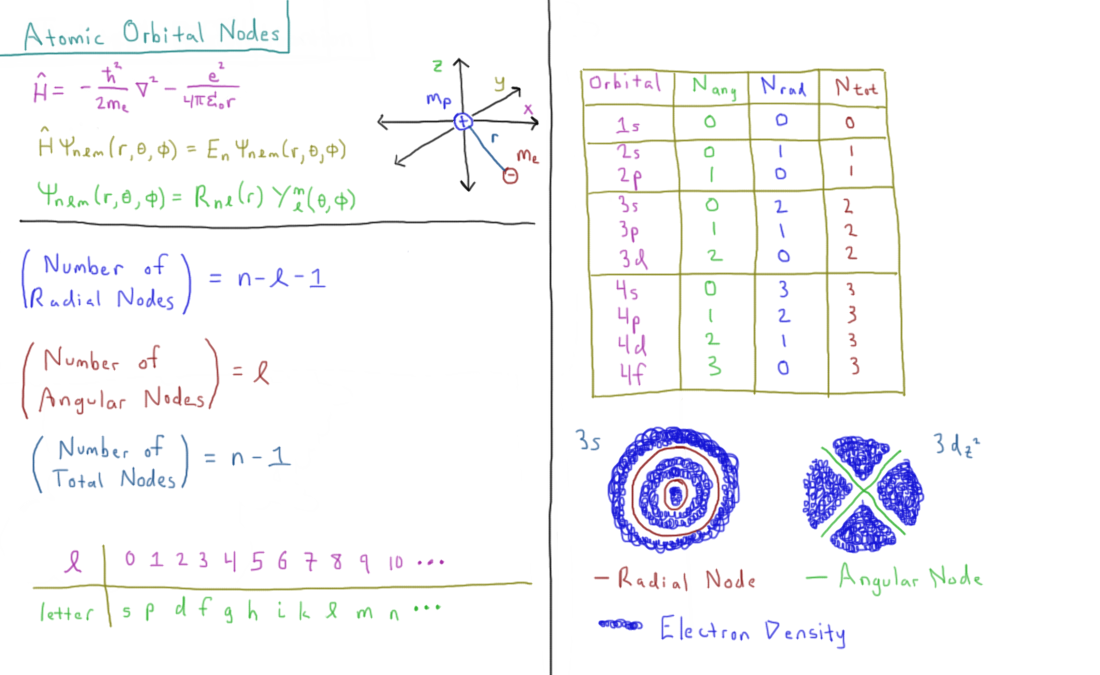 Atomic Orbital Nodes
Ĥ = - ħ²/2mₑ ∇² - e²/4πε₀r
Ĥ Ψnlm(r,θ,φ) = En Ψnlm(r,θ,φ)
Ψnlm(r,θ,φ) = Rnl(r) Yₗᵐ(θ,φ)
z
y
mp
x
+
r
me
−
(Number of
Radial Nodes) = n-l-1
(Number of
Angular Nodes) = l
(Number of
Total Nodes) = n-1
l 0 1 2 3 4 5 6 7 8 9 10 ...
letter s p d f g h i k l m n ...
Orbital Nang Nrad Ntot
1s 0 0 0
2s 0 1 1
2p 1 0 1
3s 0 2 2
3p 1 1 2
3d 2 0 2
4s 0 3 3
4p 1 2 3
4d 2 1 3
4f 3 0 3
3s
3dz²
- Radial Node
- Angular Node
Electron Density